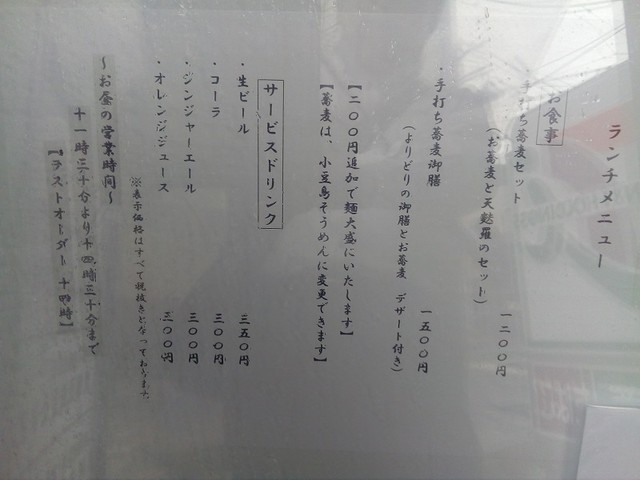 ランチメニュー
お食事
・手打ち蕎麦セット 一二〇〇円
(お蕎麦と天麩羅のセット)
・手打ち蕎麦御膳 一五〇〇円
(よりどりの御膳とお蕎麦 デザート付き)
【二〇〇円追加で麺大盛にいたします】
【蕎麦は、小豆島そうめんに変更できます】
サービスドリンク
・生ビール 三五〇円
・コーラ 三〇〇円
・ジンジャーエール 三〇〇円
・オレンジジュース 三〇〇円
※表示価格はすべて税抜きとなっております。
～お昼の営業時間～
十一時三十分より十四時三十分まで
【ラストオーダー 十四時】